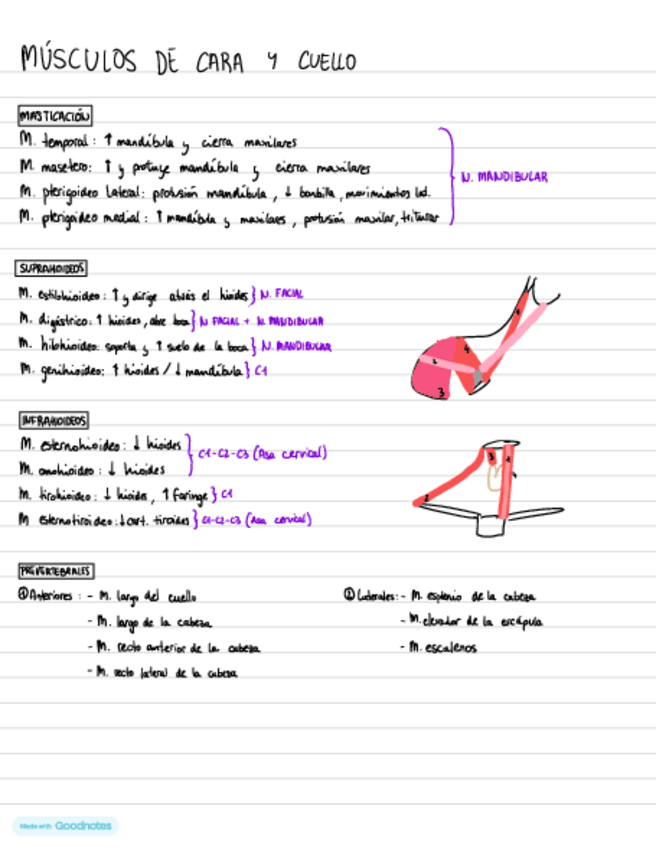 MÚSCULOS DE CARA Y CUELLO
MASTICACIÓN
M. temporal: ↑ mandíbula y cierra maxilares
M. masetero: ↑ y protuye mandíbula y cierra maxilares
M. pterigoideo Lateral: protusión mandíbula, ↓ barbilla, movimientos lat.
M. pterigoideo medial: ↑ mandíbula y maxilares, protusión maxilar, triturar
N. MANDIBULAR
SUPRAHIOIDEOS
M. estilohioideo: ↑ y dirige atrás el hioides} N. FACIAL
M. digástrico: ↑ hioides, abre boca} N. FACIAL + N. MANDIBULAR
M. hilohioideo: soporta y ↑ suelo de la boca} N. MANDIBULAR
M. genihioideo: ↑ hioides / ↓ mandíbula} C1
1
2
4
3
INFRAHOIDEOS
M. esternohioideo: ↓ hioides
M. omohioideo: ↓ hioides
C1-C2-C3 (Asa cervical)
M. tirohioideo: ↓ hioides, ↑ faringe} C1
M esternotiroideo: ↓ cart. tiroides} C1-C2-C3 (Asa cervical)
3
1
2
4
PREVERTEBRALES
① Anteriores: - M. largo del cuello
- M. largo de la cabeza
- M. recto anterior de la cabeza
- M. recto lateral de la cabeza
② Laterales: - M. esplenio de la cabeza
- M. elevador de la escápula
- M. escalenos
Made with Goodnotes